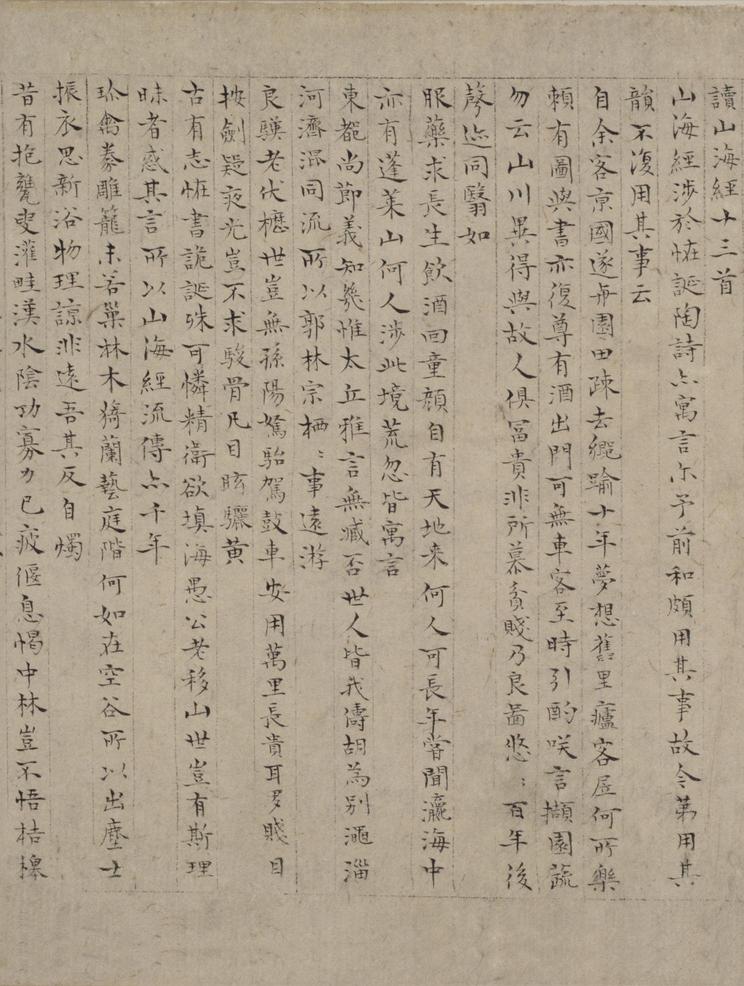 讀山海經十三首
山海經涉於恠誕陶詩亦寓言尓予前和頗用其事故今第用其
韻不復用其事云
自余客京國遂与園田疎去繩踰十年夢想舊里廬客居何所樂
頼有圖與書亦復尊有酒出門可無車客至時引酌咲言擷園蔬
勿云山川異得與故人俱冨貴非所慕貧賤乃良啚悠〻百年後
謦迹同翳如
服藥求長生飲酒回童顔自有天地来何人可長年嘗聞瀛海中
亦有蓬莱山何人涉此境荒忽皆寓言
東都尚節義知幾惟太丘雅言無臧否世人皆我儔胡為別澠淄
河濟混同流所以郭林宗栖〻事遠游
良驥老伏櫪世豈無孫陽駑駘駕鼓車安用萬里長貴耳多賤目
按劍疑夜光豈不求駿骨凡目眩驪黄
古有志恠書詭誕殊可憐精衛欲填海愚公老移山世豈有斯理
昧者惑其言所以山海經流傳亦千年
珎禽豢雕籠未若巢林木猗蘭藝庭階何如在空谷所以出塵士
振衣思新浴物理諒非遠吾其反自燭
昔有抱甕叟灌畦漢水陰功寡力已疲偃息愒中林豈不悟桔橰